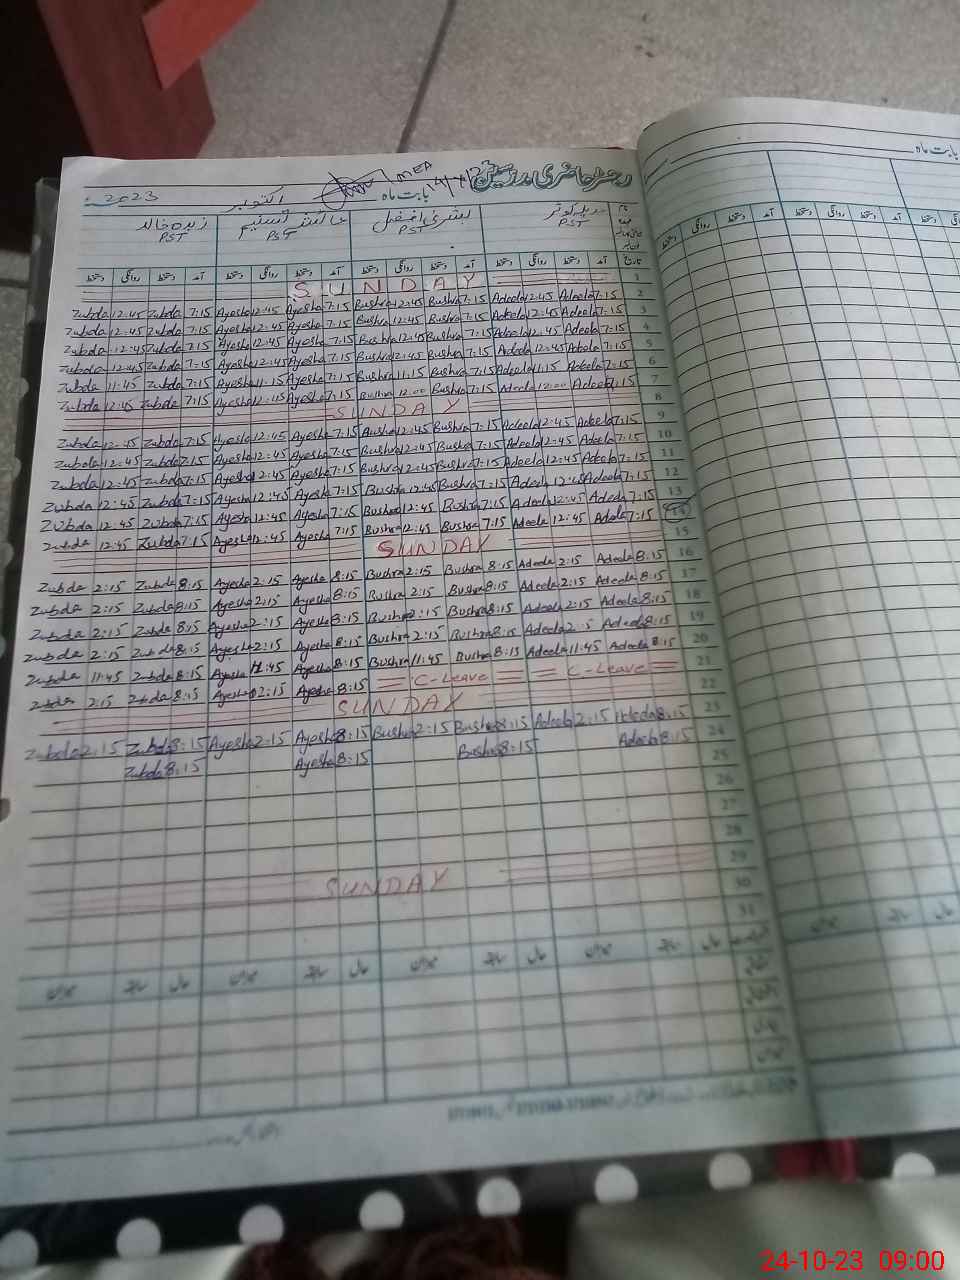 رجسٹر حاضری مدرسین
بابت ماہ اکتوبر 2023
MEA
بابت ماہ
PST PST PST PST
تاریخ آمد دستخط روانگی دستخط آمد دستخط روانگی دستخط آمد دستخط روانگی دستخط آمد دستخط روانگی دستخط
1 SUNDAY
2 Zubda 12:45 Zubda 7:15 Ayesha 12:45 Ayesha 7:15 Bushra 12:45 Bushra 7:15 Adeela 12:45 Adeela 7:15
3 Zubda 12:45 Zubda 7:15 Ayesha 12:45 Ayesha 7:15 Bushra 12:45 Bushra 7:15 Adeela 12:45 Adeela 7:15
4 Zubda 12:45 Zubda 7:15 Ayesha 12:45 Ayesha 7:15 Bushra 12:45 Bushra 7:15 Adeela 12:45 Adeela 7:15
5 Zubda 12:45 Zubda 7:15 Ayesha 12:45 Ayesha 7:15 Bushra 12:45 Bushra 7:15 Adeela 12:45 Adeela 7:15
6 Zubda 11:45 Zubda 7:15 Ayesha 11:15 Ayesha 7:15 Bushra 11:15 Bushra 7:15 Adeela 11:15 Adeela 7:15
7 Zubda 12:45 Zubda 7:15 Ayesha Ayesha 7:15 Bushra 12:00 Bushra 7:15 Adeela 12:00 Adeela
8 SUNDAY
9 Zubda 12:45 Zubda 7:15 Ayesha 12:45 Ayesha 7:15 Bushra 12:45 Bushra 7:15 Adeela 12:45 Adeela 7:15
10 Zubda 12:45 Zubda 7:15 Ayesha 12:45 Ayesha 7:15 Bushra 12:45 Bushra 7:15 Adeela 12:45 Adeela 7:15
11 Zubda 12:45 Zubda 7:15 Ayesha 12:45 Ayesha 7:15 Bushra 12:45 Bushra 7:15 Adeela 12:45 Adeela 7:15
12 Zubda 12:45 Zubda 7:15 Ayesha 12:45 Ayesha 7:15 Bushra 12:45 Bushra 7:15 Adeela 12:45 Adeela 7:15
13 Zubda 12:45 Zubda 7:15 Ayesha 12:45 Ayesha 7:15 Bushra 12:45 Bushra 7:15 Adeela 12:45 Adeela 7:15
14 Zubda 12:45 Zubda 7:15 Ayesha 12:45 Ayesha 7:15 Bushra 12:45 Bushra 7:15 Adeela 12:45 Adeela 7:15
15 SUNDAY
16 Zubda 2:15 Zubda 8:15 Ayesha 2:15 Ayesha 8:15 Bushra 2:15 Bushra 8:15 Adeela 2:15 Adeela 8:15
17 Zubda 2:15 Zubda 8:15 Ayesha 2:15 Ayesha 8:15 Bushra 2:15 Bushra 8:15 Adeela 2:15 Adeela 8:15
18 Zubda 2:15 Zubda 8:15 Ayesha 2:15 Ayesha 8:15 Bushra 2:15 Bushra 8:15 Adeela 2:15 Adeela 8:15
19 Zubda 2:15 Zubda 8:15 Ayesha 2:15 Ayesha 8:15 Bushra 2:15 Bushra 8:15 Adeela 2:15 Adeela 8:15
20 Zubda 11:45 Zubda 8:15 Ayesha 11:45 Ayesha 8:15 Bushra 11:45 Bushra 8:15 Adeela 11:45 Adeela 8:15
21 Zubda 2:15 Zubda 8:15 Ayesha 2:15 Ayesha 8:15 C-Leave C-Leave
22 SUNDAY
23 Zubda 2:15 Zubda 8:15 Ayesha 2:15 Ayesha 8:15 Bushra 2:15 Bushra 8:15 Adeela 2:15 Adeela 8:15
24 Zubda 8:15 Ayesha 8:15 Bushra 8:15 Adeela 8:15
25
26
27
28
29 SUNDAY
30
31
حال سابقہ میزان حال سابقہ میزان حال سابقہ میزان حال سابقہ میزان
24-10-23 09:00